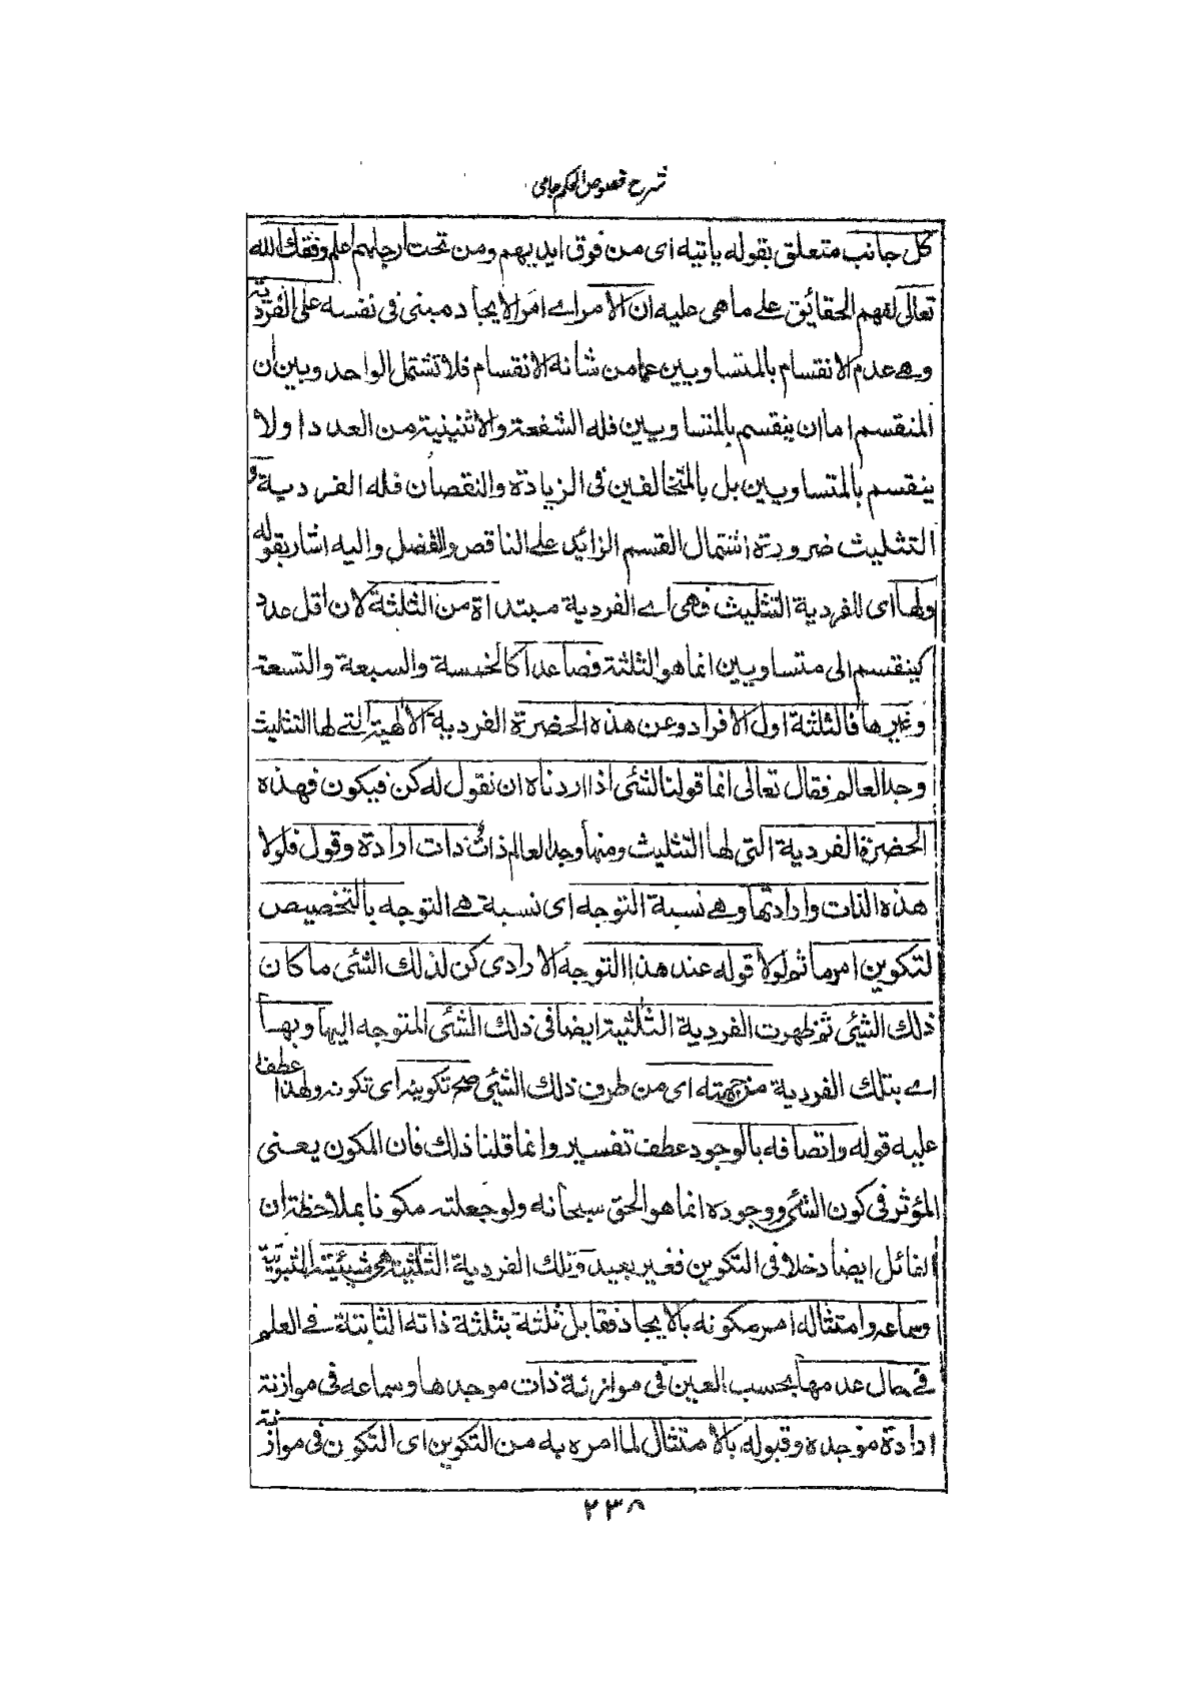 شرح فصوص الحكم جامی
كل جانب متعلق بقوله ياتيه اى من فوق ايديهم ومن تحت ارجلهم اعلم وفقك الله
تعالى لفهم الحقائق على ماهى عليه ان الامر اے امر الايجاد مبنى فى نفسه على الفردية
وهے عدم الانقسام بالمتساويين عما من شانه الانقسام فلا تشتمل الواحد وبين ان
المنقسم اما ان ينقسم بالمتساويين فله الشفعة والاثنينية من العدد اولا
ينقسم بالمتساويين بل بالمتخالفين فى الزيادة والنقصان فله الفردية و
التثليث ضرورة اشتمال القسم الزائد على الناقص والفضل واليه اشار بقوله
ولها اى للفردية التثليث فهى اے الفردية مبتداة من الثلثة لان اقل عدد
لاينقسم الى متساويين انما هو الثلثة فصاعدا كالخمسة والسبعة والتسعة
وغيرها فالثلثة اول الافراد وعن هذه الحضرة الفردية الالهية التے لها التثليث
وجد العالم فقال تعالى انما قولنا لشئ اذا اردناه ان نقول له كن فيكون فهذه
الحضرة الفردية التى لها التثليث ومنها وجد العالم ذات ذات ارادة وقول فلولا
هذه الذات وارادتها وهے نسبة التوجه اى نسبة هے التوجه بالتخصيص
لتكوين امر ما ثم لولا قوله عند هذا التوجه الارادى كن لذلك الشئ ما كان
ذلك الشئ ثم ظهرت الفردية الثلثية ايضا فى ذلك الشئ المتوجه اليها وبها
اے بتلك الفردية من جهته اى من طرف ذلك الشئ صح تكوينه اى تكونه ولهذا عطف
عليه قوله واتصافه بالوجود عطف تفسير وانما قلنا ذلك فان المكون يعنى
المؤثر فى كون الشئ ووجوده انما هو الحق سبحانه ولو جعلته مكونا بملاحظة ان
القائل ايضا دخلا فى التكوين فغير بعيد وتلك الفردية الثلثية هى شيئيته الثبوتية
وسماعه وامتثاله امر مكونه بالايجاد فقابل ثلثة بثلثة ذاته الثابتة فے العلم
فے حال عدمها بحسب العين فى موازنة ذات موجدها وسماعه فى موازنة
ارادة موجده وقبوله بالامتثال لما امره به من التكوين اى التكون فى موازنة
٢٣٨